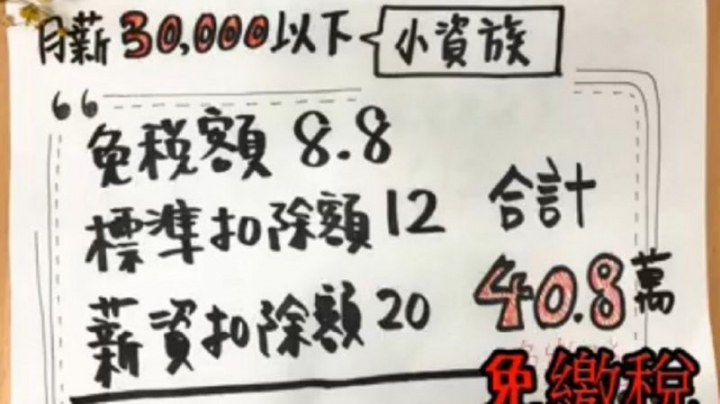 月薪30,000以下 小資族
免稅額 8.8
標準扣除額 12
薪資扣除額 20
合計
40.8萬
免繳稅